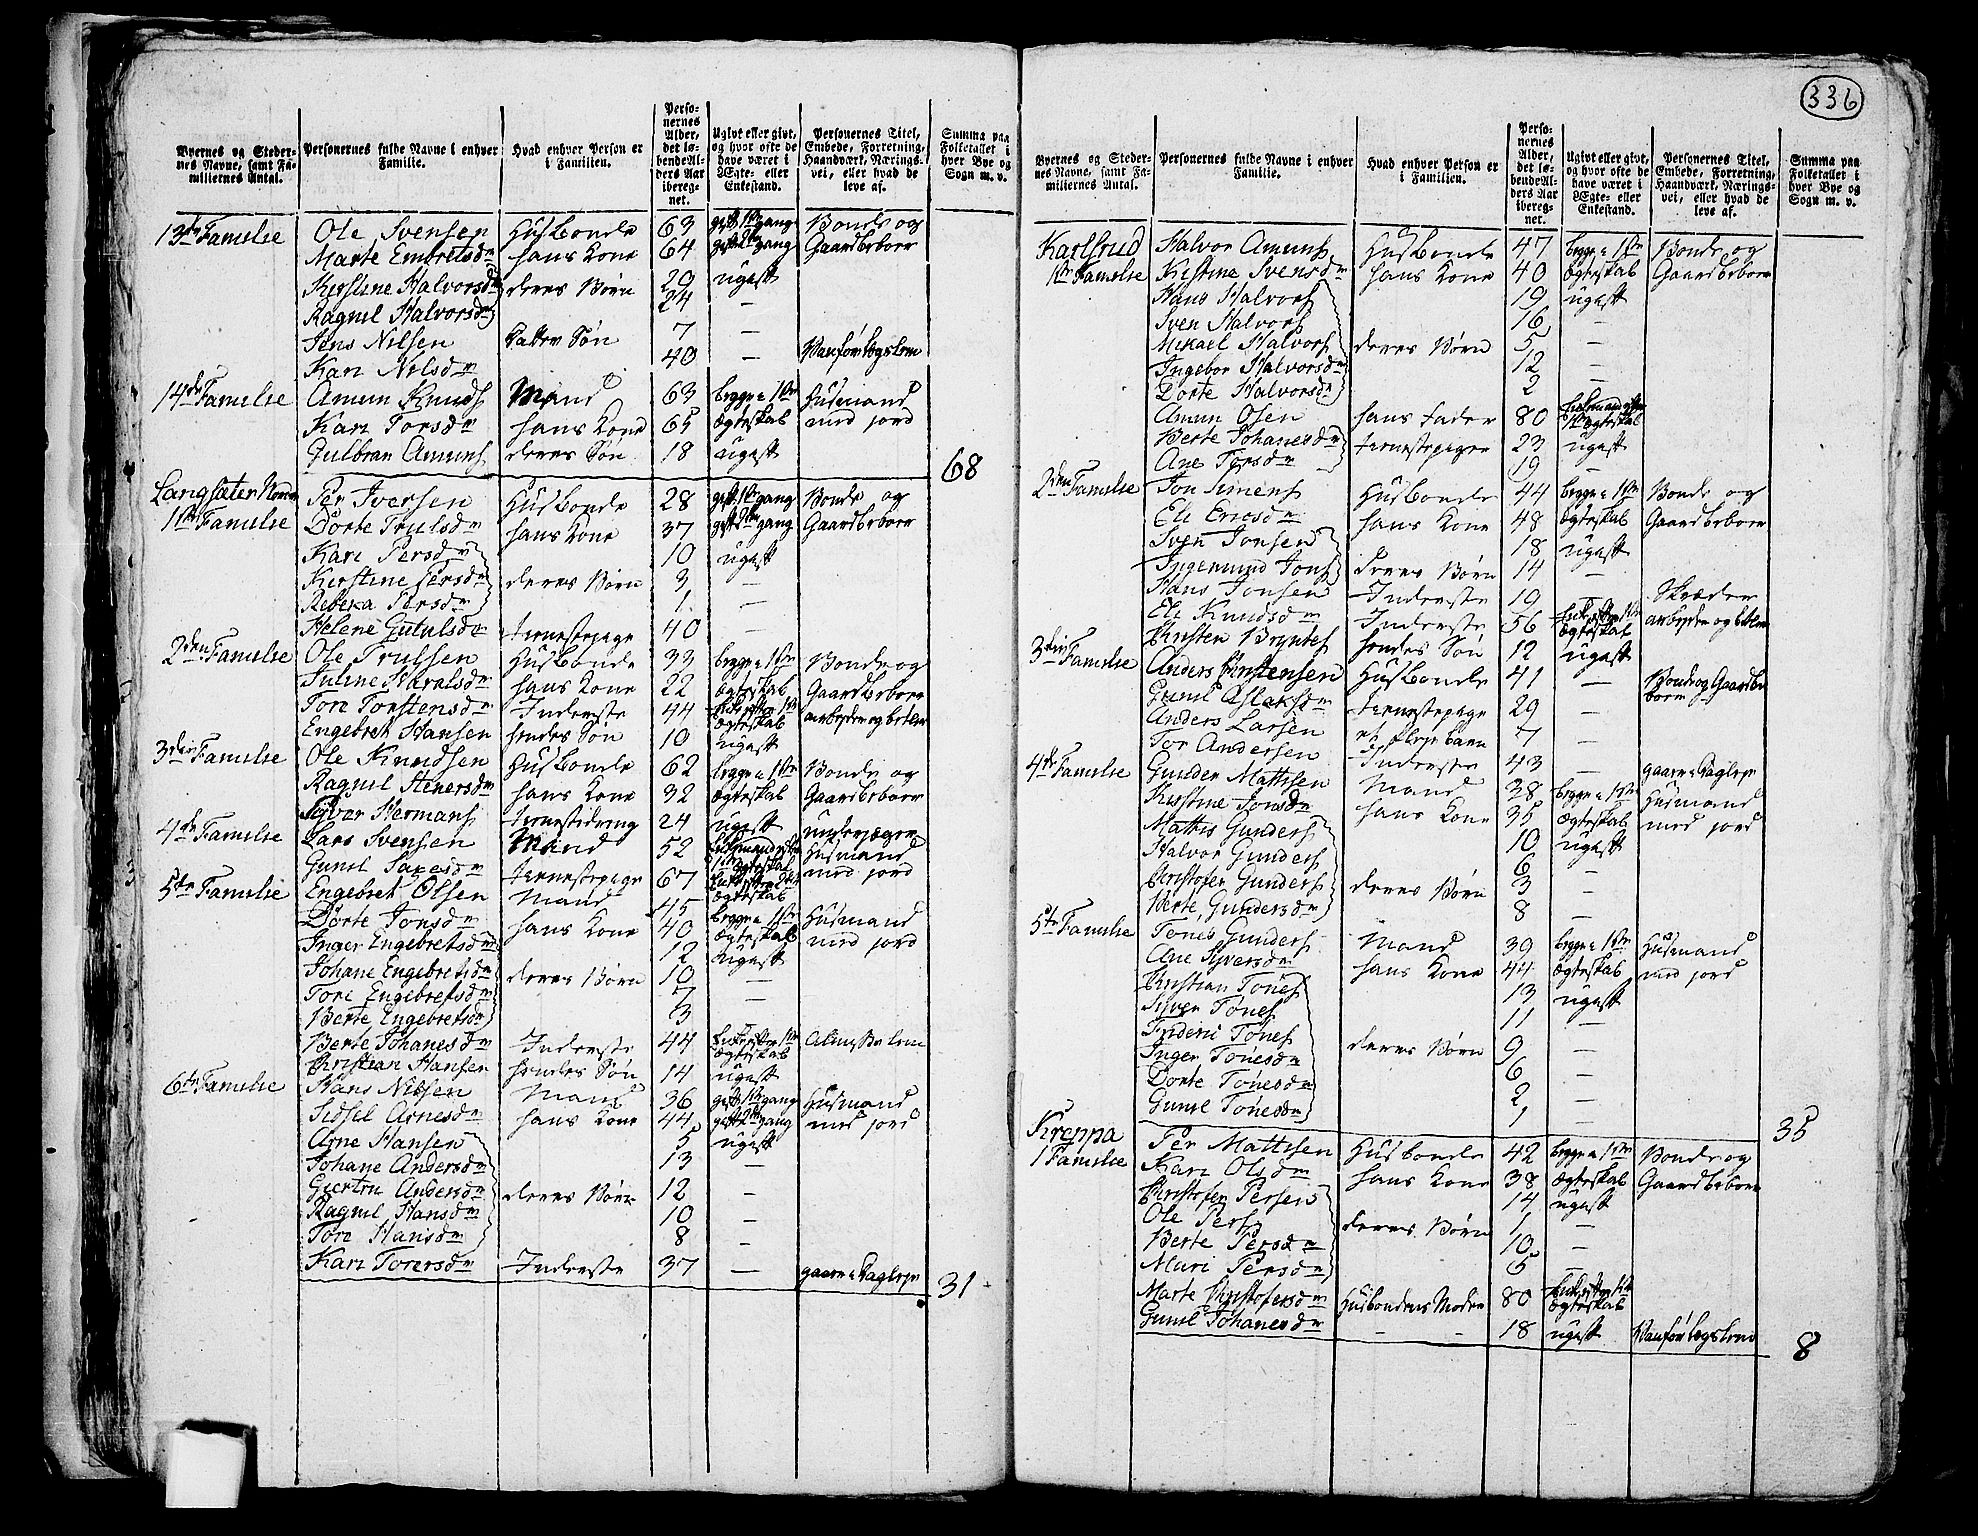 336
Byernes og Steder-
nes Navne, samt Fa-
miliernes Antal.
Personernes fulde Navne i enhver
Familie.
Hvad enhver Person er
i Familien.
Perso-
nernes
Alder,
det lø-
bende Al-
ders Aar
iberegt-
net.
Ugivt eller givt,
og hvor ofte de
have været i
Ægte- eller
Enkestand.
Personernes Titel,
Embede, Forretning,
Haandværk, Nærings-
vei, eller hvad de
leve af.
Summa paa
Folketallet i
hver Bye og
Sogn m. v.
13de Familie Ole Svensen Husbonde 63 gift 1ste gang Bonde og
Marte Embretsdr hans Kone 64 gift 2den gang Gaardbeboer
Kirstine Halvorsdr deres Børn 20 ugift
Ragnil Halvorsdr 24 —
Jens Nilsen Datter Søn 7 —
Kari Nilsdr 40 — Vanfør lægslem
14de Familie Amun Knuds Mand 63 begge i 1ste Husmand
Kari Torsdr hans Kone 65 Ægteskab med jord
Gulbran Amuns deres Søn 18 ugift
68
Langsæter Nordre Per Iversen Husbonde 28 gift 1ste gang Bonde og
1ste Familie Dorte Trulsdr hans Kone 37 gift 2den gang Gaardbeboer
Kari Persdr 10 ugift
Kirstine Persdr deres Børn 3 —
Rebeka Persdr 1 —
Helene Gutulsdr tienestepige 40 —
2den Familie Ole Trulsen Husbonde 33 begge i 1ste Bonde og
Juline Haralsdr hans Kone 22 Ægteskab Gaardbeboer
Tore Torstensdr Inderste 44 Enke efter 1ste Ægteskab arbejder og betler
Engebret Hansen hendes Søn 10 ugift
3die Familie Ole Knudsen Husbonde 62 begge i 1ste Bonde og
Ragnil Stenersdr hans Kone 32 Ægteskab Gaardbeboer
Syver Hermans tienestedreng 24 ugift underjæger
4de Familie Lars Svensen Mand 52 Enkemand efter 1ste Ægteskab Husmand
Gunil Saxesdr tienestepige 67 Enke efter 2det Ægteskab med jord
5te Familie Engebret Olsen Mand 45 begge i 1ste Husmand
Dorte Jonsdr hans Kone 40 Ægteskab med jord
Inger Engebretsdr 12 ugift
Johane Engebretsdr deres Børn 10 —
Tore Engebretsdr 7 —
Berte Engebretsdr 3
Berte Johanesdr Inderste 44 Enke efter 1ste Ægteskab Almisselem
Kristian Hansen hendes Søn 14 ugift
6te Familie Hans Nilsen Mand 36 gift 1ste gang Husmand
Sidsel Arnesdr hans Kone 44 gift 2den gang med jord
Arne Hansen 5 ugift
Johane Andersdr 13 —
Giertru Andersdr deres Børn 12 —
Ragnil Hansdr 10 —
Tore Hansdr 8 —
Kari Torersdr Inderste 37 — gaaer i Dagleje
31
Byernes og Steder-
nes Navne, samt Fa-
miliernes Antal.
Personernes fulde Navne i enhver
Familie.
Hvad enhver Person er
i Familien.
Perso-
nernes
Alder,
det lø-
bende Al-
ders Aar
iberegt-
net.
Ugivt eller givt,
og hvor ofte de
have været i
Ægte- eller
Enkestand.
Personernes Titel,
Embede, Forretning,
Haandværk, Nærings-
vei, eller hvad de
leve af.
Summa paa
Folketallet i
hver Bye og
Sogn m. v.
Karlsrud Halvor Amuns Husbonde 47 begge i 1ste Bonde og
1ste Familie Kirstine Svensdr hans Kone 40 Ægteskab Gaardbeboer
Hans Halvors 19 ugift
Sven Halvors 16 —
Mikael Halvors deres Børn 5 —
Ingebor Halvorsdr 12 —
Dorte Halvorsdr 2
Amun Olsen hans Fader 80 Enkemand efter 1ste Ægteskab
Berte Johanesdr tienestepiger 23 ugift
Ane Torsdr 19 —
2den Familie Jon Simens Husbonde 44 begge i 1ste Bonde og
Eli Ericsdr hans Kone 48 Ægteskab Gaardbeboer
Sven Jonsen 18 ugift
Ingemund Jons deres Børn 14 —
Hans Jonsen Inderste 19 — Skræder
Eli Knudsdr Inderste 56 Enke efter 1ste Ægteskab arbejder og betler
Kristen Bryntes hendes Søn 12 ugift
3die Familie Anders Kristensen Husbonde 41 — Bonde og Gaardbe
boer
Gunil Aslaksdr tienestepige 29 —
Anders Larsen et pleje barn 7 —
Tor Andersen Inderste 43 — gaaer i Dagleje
4de Familie Gunder Mattisen Mand 38 begge i 1ste Husmand
Kirstine Jonsdr hans Kone 35 Ægteskab med jord
Mattis Gunders 10 ugift
Halvor Gunders 6 —
Kristofer Gunders deres Børn 3 —
Berte Gundersdr 8 —
5te Familie Tønes Gunders Mand 39 begge i 1ste Husmand
Ane Syversdr hans Kone 44 Ægteskab med jord
Kristian Tønes 13 ugift
Syver Tønes 11 —
Frideric Tønes deres Børn 9 —
Inger Tønesdr 6 —
Dorte Tønesdr 2 —
Gunil Tønesdr 1 —
35
Kreppa Per Mattisen Husbonde 42 begge i 1ste Bonde og
1 Familie Kari Olsdr hans Kone 38 Ægteskab Gaardbeboer
Kristofer Persen 14 ugift
Ole Pers deres Børn 1 —
Berte Persdr 10 —
Muri Persdr 5 —
Marte Kristofersdr Husbondens Moder 80 Enke efter 1ste Ægteskab
Gunil Johanesdr — — 18 ugift Vanfør lægslem
8